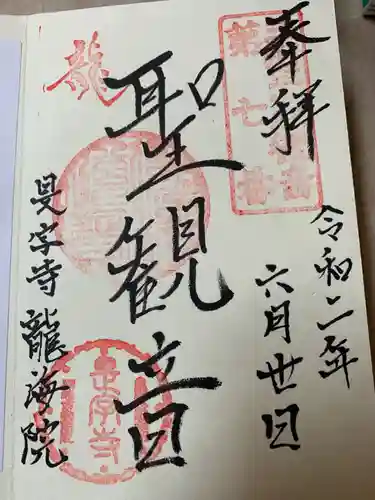 奉拝
第七番
令和二年
六月廿日
聖観音
龍
是字寺龍海院
是字寺